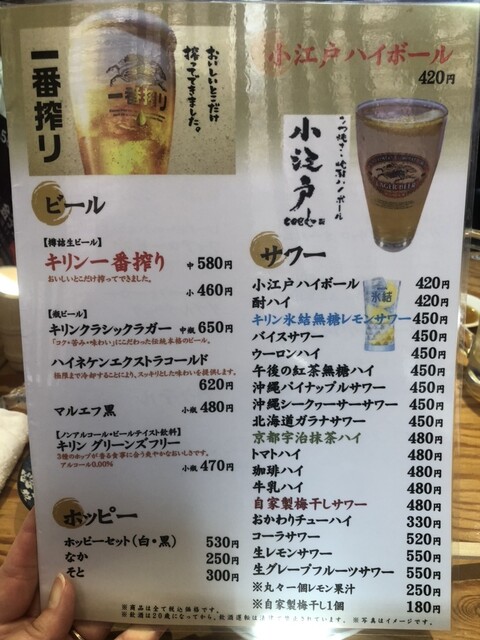 一番搾り
おいしいとこだけ
搾ってできました。
一番搾り
ビール
【樽詰生ビール】
キリン一番搾り 中 580円
おいしいとこだけ搾ってできました。
小 460円
【瓶ビール】
キリンクラシックラガー 中瓶 650円
「コク・苦み・味わい」にこだわった伝統本格のビール。
ハイネケンエクストラコールド
極限まで冷却することにより、スッキリとした味わいを提供します。
620円
マルエフ黒 小瓶 480円
【ノンアルコール・ビールテイスト飲料】
キリン グリーンズフリー
3種のホップが香る食事に合う爽やかなおいしさです。
アルコール0.00%
小瓶 470円
ホッピー
ホッピーセット(白・黒) 530円
なか 250円
そと 300円
小江戸ハイボール
420円
小江戸
サワー
氷結
小江戸ハイボール 420円
酎ハイ 420円
キリン氷結無糖レモンサワー 450円
バイスサワー 450円
ウーロンハイ 450円
午後の紅茶無糖ハイ 450円
沖縄パイナップルサワー 450円
沖縄シークヮーサーサワー 450円
北海道ガラナサワー 450円
京都宇治抹茶ハイ 480円
トマトハイ 480円
珈琲ハイ 480円
牛乳ハイ 480円
自家製梅干しサワー 480円
おかわりチューハイ 330円
コーラサワー 520円
生レモンサワー 550円
生グレープフルーツサワー 550円
※丸々一個レモン果汁 250円
※自家製梅干し1個 180円
※商品は全て税込価格です。
※飲酒は20歳になってから。飲酒運転は法律で禁止されています。 ※写真はイメージです。